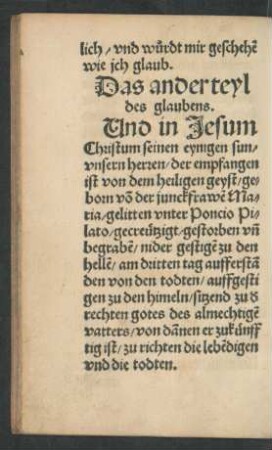 lich / vnd würdt mir geschehē
wie jch glaub.
Das ander teyl
des glaubens.
Und in Jesum
Christum seinen eynigen sun /
vnsern herren / der empfangen
ist von dem heiligen geyst / ge⸗
born vō der junckfrawē Ma⸗
ria / gelitten vnter Poncio Pi⸗
lato / gecreützigt / gestorben vñ
begrabē / nider gestigē zu den
hellē / am dritten tag aufferstā
den von den todten / auffgesti
gen zu den himeln / sitzend zu d
rechten gotes des almechtigē
vatters / von dānen er zukünff
tig ist / zu richten die lebēdigen
vnd die todten.